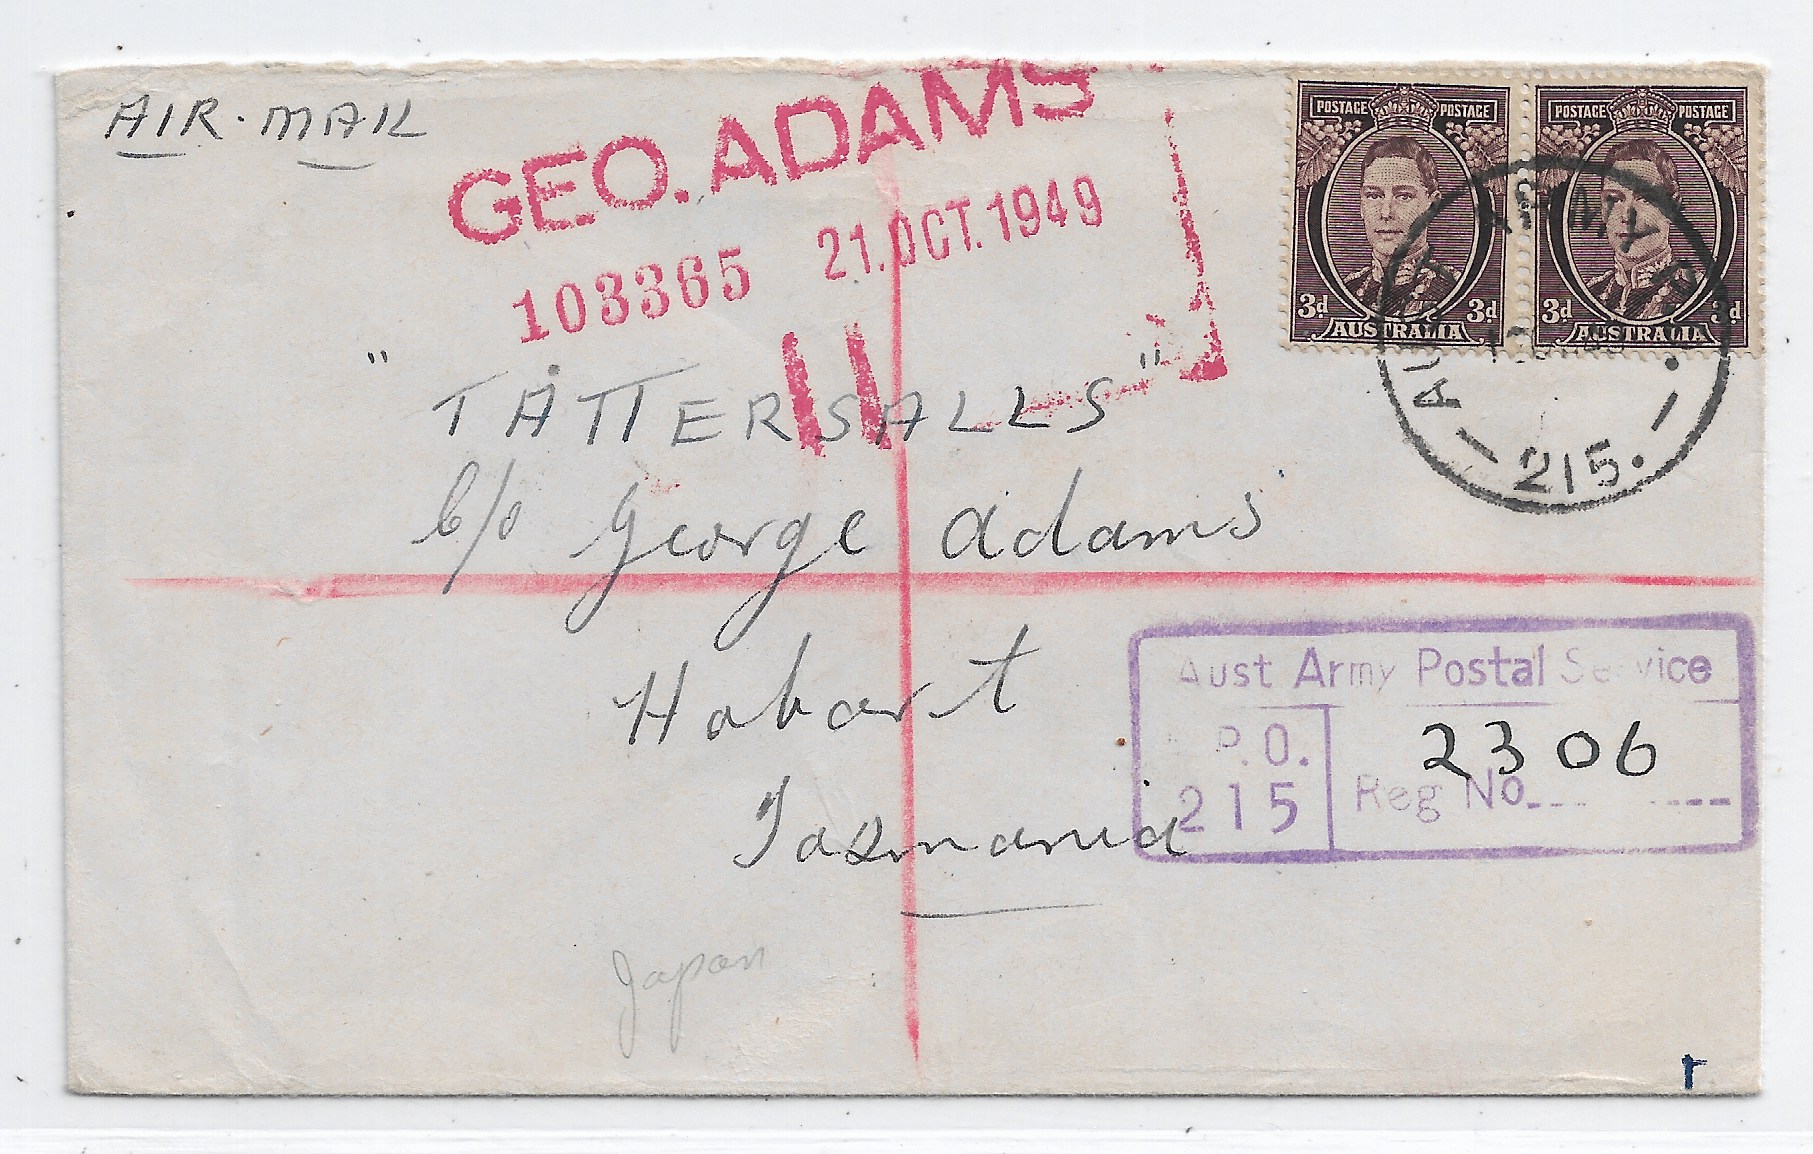 AIR. MAIL
GEO. ADAMS
103365 21.OCT.1949
11
POSTAGE POSTAGE
3d 3d
AUSTRALIA
POSTAGE POSTAGE
3d 3d
AUSTRALIA
AUST ARMY P.O.
215.
"TATTERSALLS"
C/o George Adams
Hobart
Tasmania
Aust Army Postal Service
P.O.
215
Reg No. 2306
Japan
r